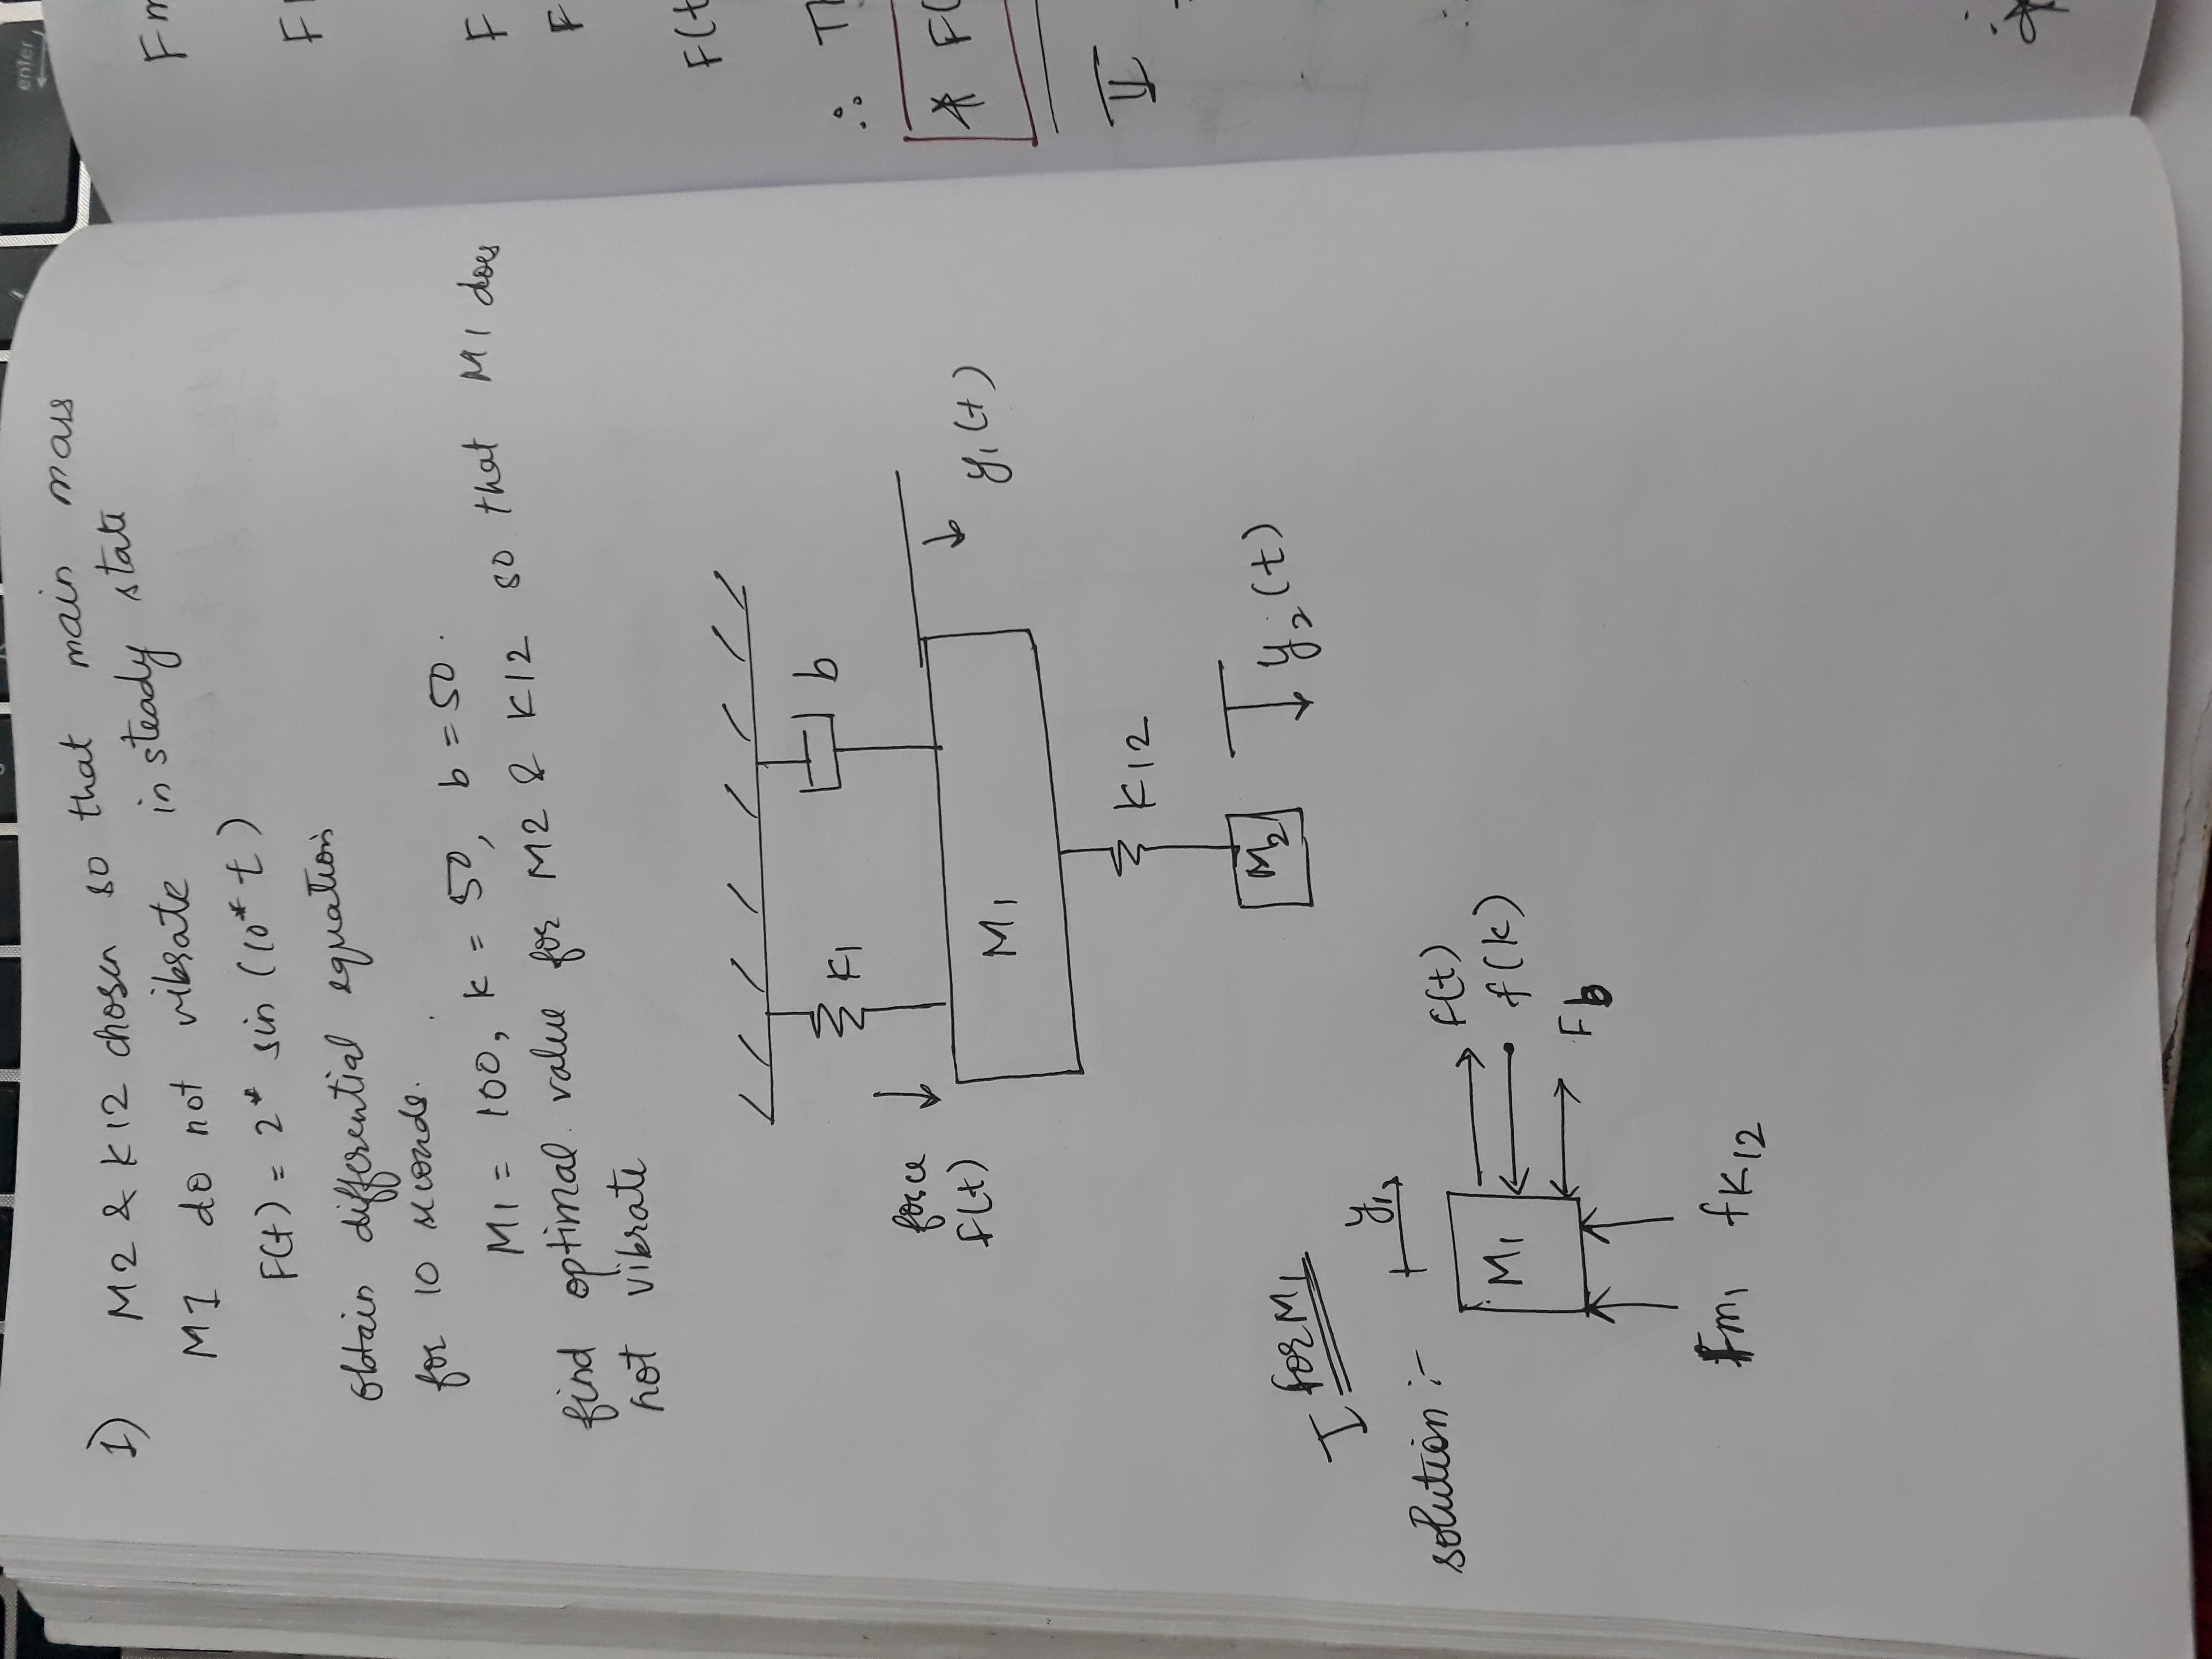 1) M2 & K12 chosen so that main mass
M1 do not vibrate in steady state
F(t) = 2* sin (10* t)
Obtain differential equation
for 10 seconds.
M1 = 100, k = 50, b = 50.
find optimal value for M2 & K12 so that M1 does
not vibrate
K1
b
force
f(t)
M1
y1(t)
K12
M2
y2(t)
I for M1
y1
solution :-
F(t)
M1
f(k)
Fb
Fm1 fK12
enter
Fm
F
F
F(t
∴ Th
* F(
II